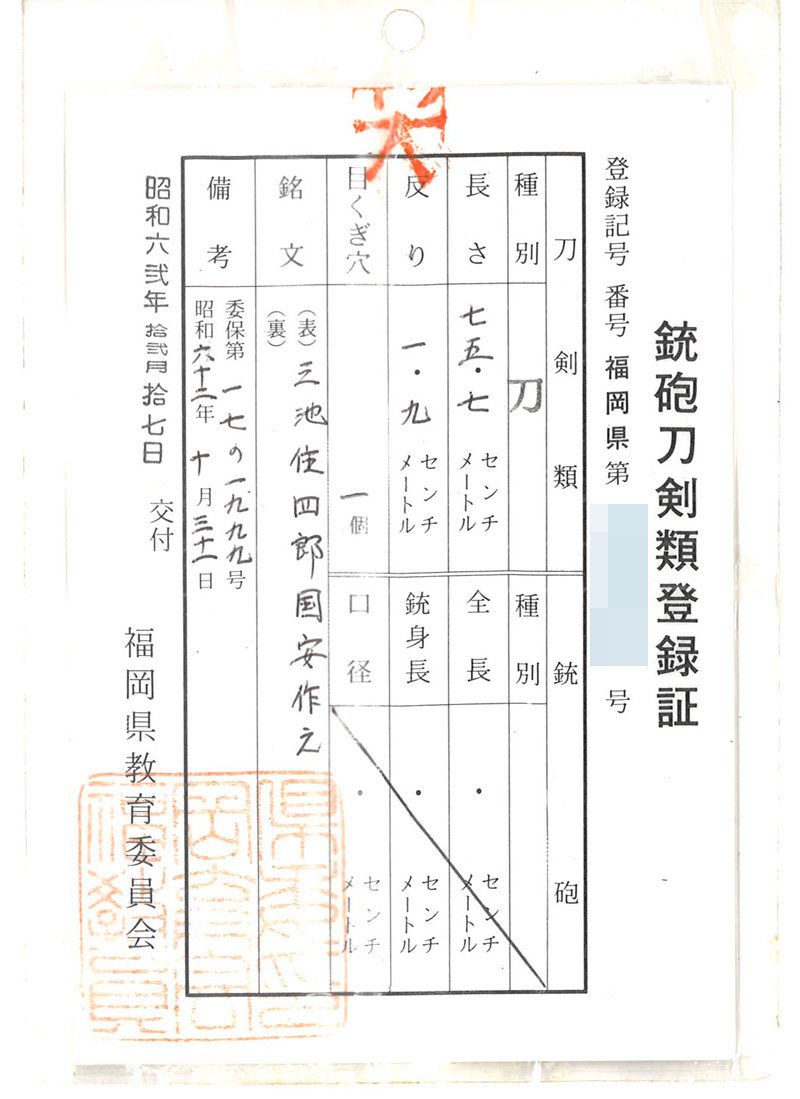 銃砲刀剣類登録証
登録記号 番号 福岡県第 号
刀剣類 銃砲
種別 刀 種別
長さ 七五・七 センチメートル 全長 ・ センチメートル
反り 一・九 センチメートル 銃身長 ・ センチメートル
目くぎ穴 一個 口径 ・ センチメートル
銘文 (表) 三池住四郎国安作之
(裏)
備考 委保第一七の一九九九号
昭和六十二年十月三十一日
昭和六弐年拾弐月拾七日 交付
福岡県教育委員会